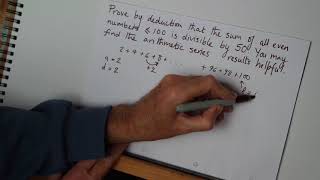 Prove by deduction that the sum of all even
numbers ⩽ 100 is divisible by 50. You may
find the arithmetic series results helpful.
2 + 4 + 6 + 8 + . . . . . + 96 + 98 + 100
a = 2
d = 2 +2